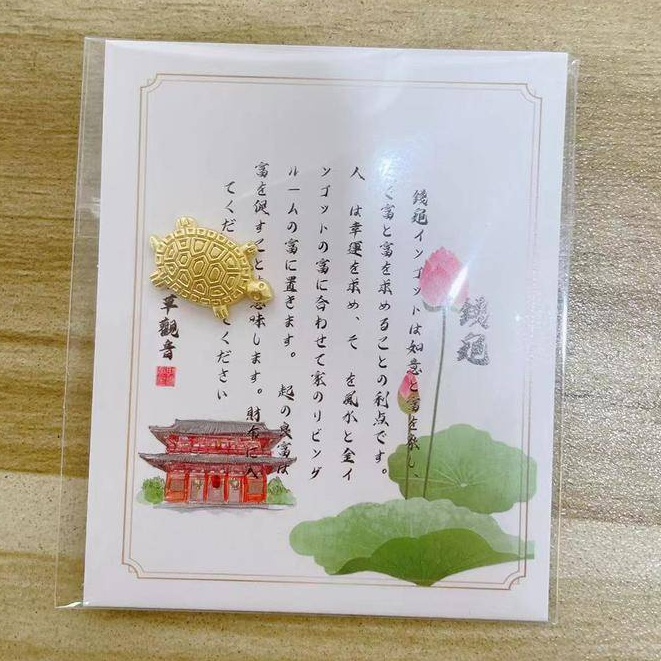 錢龜
錢龜インゴットは如意と富を
く富と富を求めることの利点です。
人 は幸運を求め、そ を風水と金イ
ンゴットの富に合わせて家のリビング
ルームの富に置きます。 起の良富は
富を促すこと 意味します。財布に入
てくだ てください
草觀音